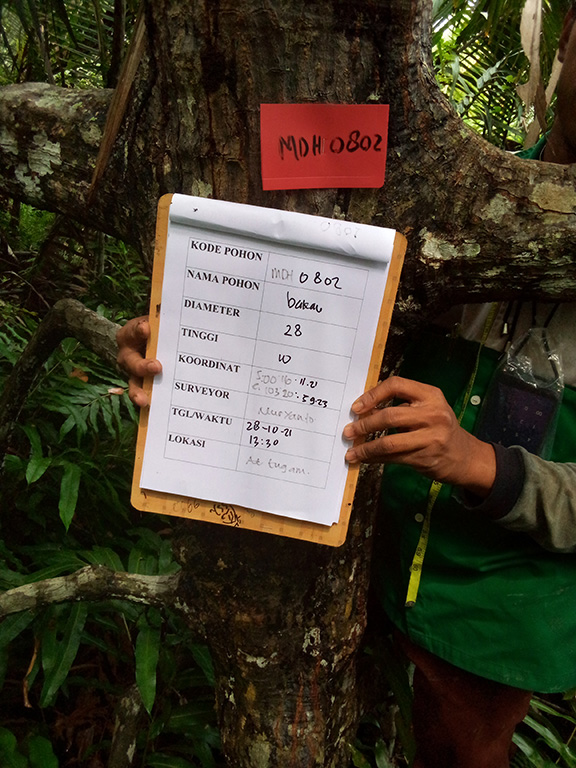 MDH 0802
KODE POHON MDH 0802
NAMA POHON bakau
DIAMETER 28
TINGGI 10
KOORDINAT S.00°16.11.21
E.103°20.59.23
SURVEYOR Nuryanto
TGL/WAKTU 28-10-21
13:30
LOKASI